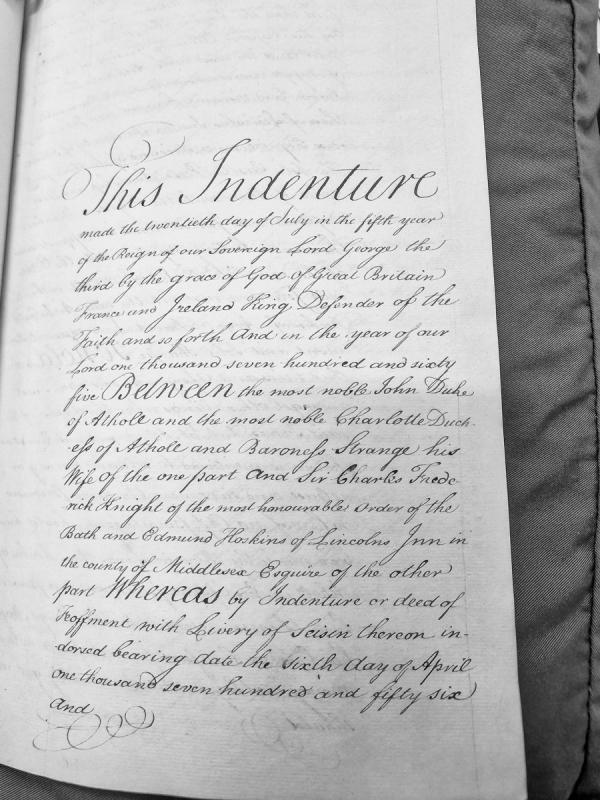 This Indenture
made the twentieth day of July in the fifth year
of the Reign of our Sovereign Lord George the
third by the grace of God of Great Britain
France and Ireland King, Defender of the
Faith and so forth And in the year of our
Lord one thousand seven hundred and sixty
five Between the most noble John Duke
of Atholl and the most noble Charlotte Duch-
-ess of Atholl and Baroness Strange his
Wife of the one part and Sir Charles Frede
rick Knight of the most honourable order of the
Bath and Edmund Hoskins of Lincolns Inn in
the county of Middlesex Esquire of the other
part Whereas by Indenture or deed of
Feoffment with Livery of Seisin thereon in-
-dorsed bearing date the sixth day of April
one thousand seven hundred and fifty six
and